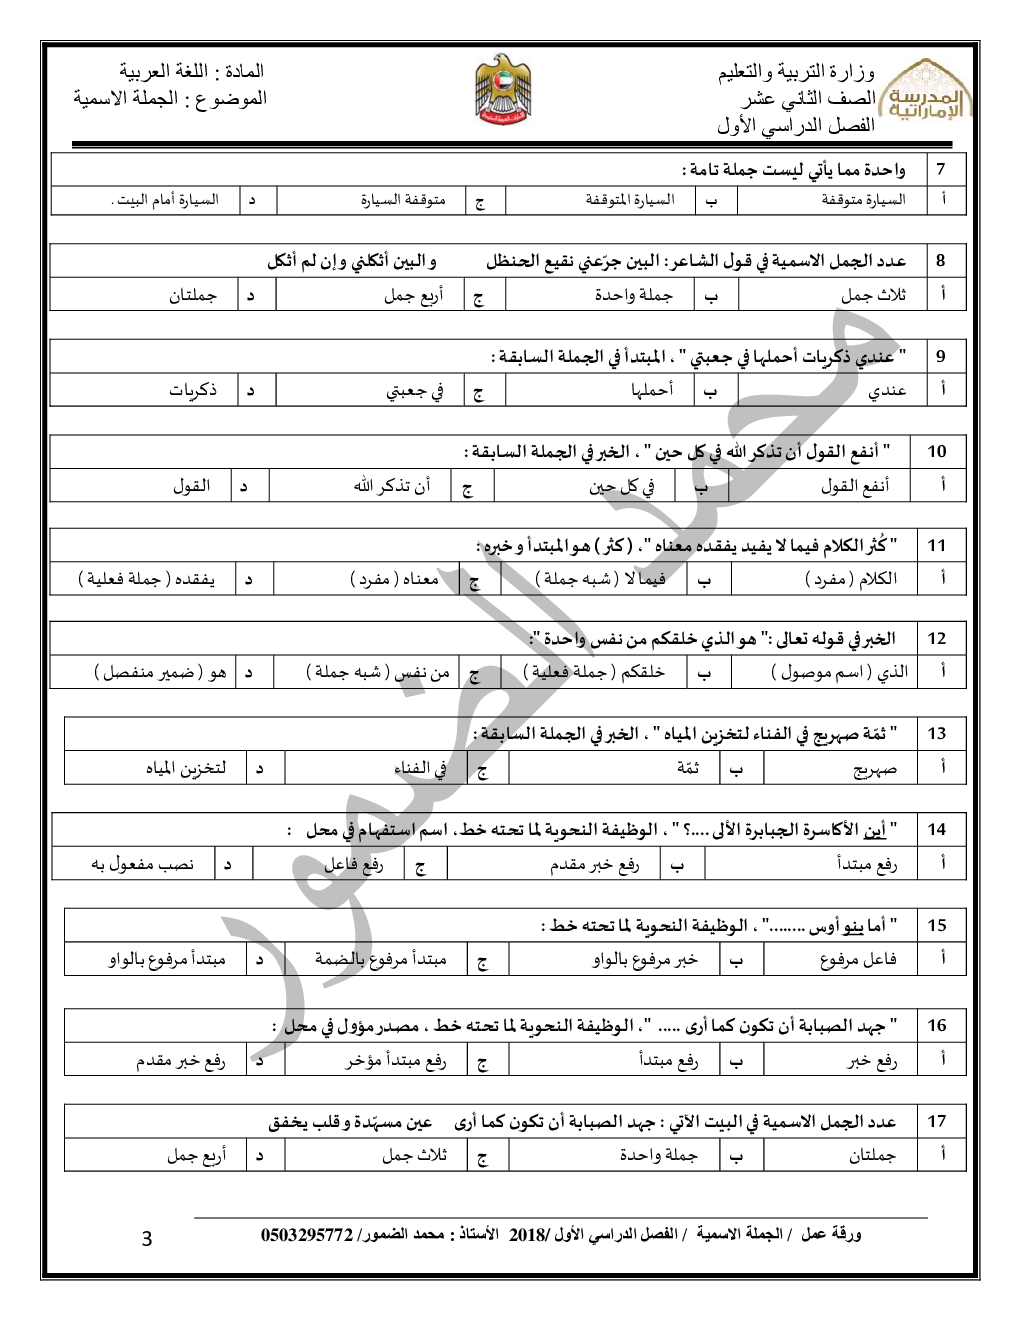 وزارة التربية والتعليم
الصف الثاني عشر
الفصل الدراسي الأول
المدرسة الإماراتية
المادة : اللغة العربية
الموضوع : الجملة الاسمية
7 واحدة مما يأتي ليست جملة تامة :
أ السيارة متوقفة ب السيارة المتوقفة ج متوقفة السيارة د السيارة أمام البيت .
8 عدد الجمل الاسمية في قول الشاعر : البين جرّعني نقيع الحنظل والبين أثكلني وإن لم أثكل
أ ثلاث جمل ب جملة واحدة ج أربع جمل د جملتان
9 " عندي ذكريات أحملها في جعبتي " ، المبتدأ في الجملة السابقة :
أ عندي ب أحملها ج في جعبتي د ذكريات
10 " أنفع القول أن تذكر الله في كل حين " ، الخبر في الجملة السابقة :
أ أنفع القول ب في كل حين ج أن تذكر الله د القول
11 " كُثر الكلام فيما لا يفيد يفقده معناه "، ( كثر ) هو المبتدأ وخبره :
أ الكلام ( مفرد ) ب فيما لا ( شبه جملة ) ج معناه ( مفرد ) د يفقده ( جملة فعلية )
12 الخبر في قوله تعالى :" هو الذي خلقكم من نفس واحدة ":
أ الذي ( اسم موصول ) ب خلقكم ( جملة فعلية ) ج من نفس ( شبه جملة ) د هو ( ضمير منفصل )
13 " ثمّة صهريج في الفناء لتخزين المياه " ، الخبر في الجملة السابقة :
أ صهريج ب ثمّة ج في الفناء د لتخزين المياه
14 " أين الأكاسرة الجبابرة الألى ....؟ " ، الوظيفة النحوية لما تحته خط، اسم استفهام في محل :
أ رفع مبتدأ ب رفع خبر مقدم ج رفع فاعل د نصب مفعول به
15 " أما بنو أوس ........" ، الوظيفة النحوية لما تحته خط :
أ فاعل مرفوع ب خبر مرفوع بالواو ج مبتدأ مرفوع بالضمة د مبتدأ مرفوع بالواو
16 " جهد الصبابة أن تكون كما أرى ..... "، الوظيفة النحوية لما تحته خط ، مصدر مؤول في محل :
أ رفع خبر ب رفع مبتدأ ج رفع مبتدأ مؤخر د رفع خبر مقدم
17 عدد الجمل الاسمية في البيت الآتي : جهد الصبابة أن تكون كما أرى عين مسهّدة وقلب يخفق
أ جملتان ب جملة واحدة ج ثلاث جمل د أربع جمل
محمد الضمور
ورقة عمل / الجملة الاسمية / الفصل الدراسي الأول /2018 الأستاذ : محمد الضمور/ 0503295772
3